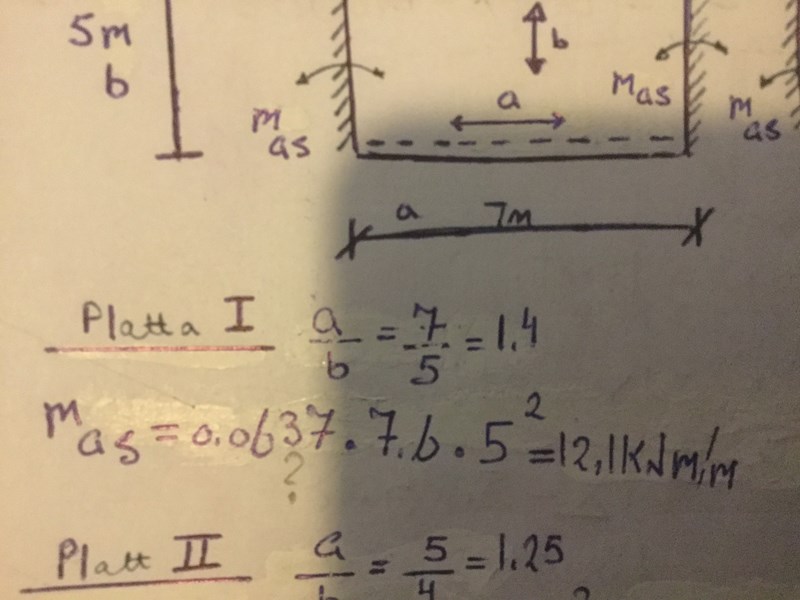 5m
b
b
a
m as
m as
m as
a 7m
Platta I a/b = 7/5 = 1.4
m as = 0.0637 · 7.6 · 5² = 12,1 KNm/m
?
Platt II a/b = 5/4 = 1.25
2